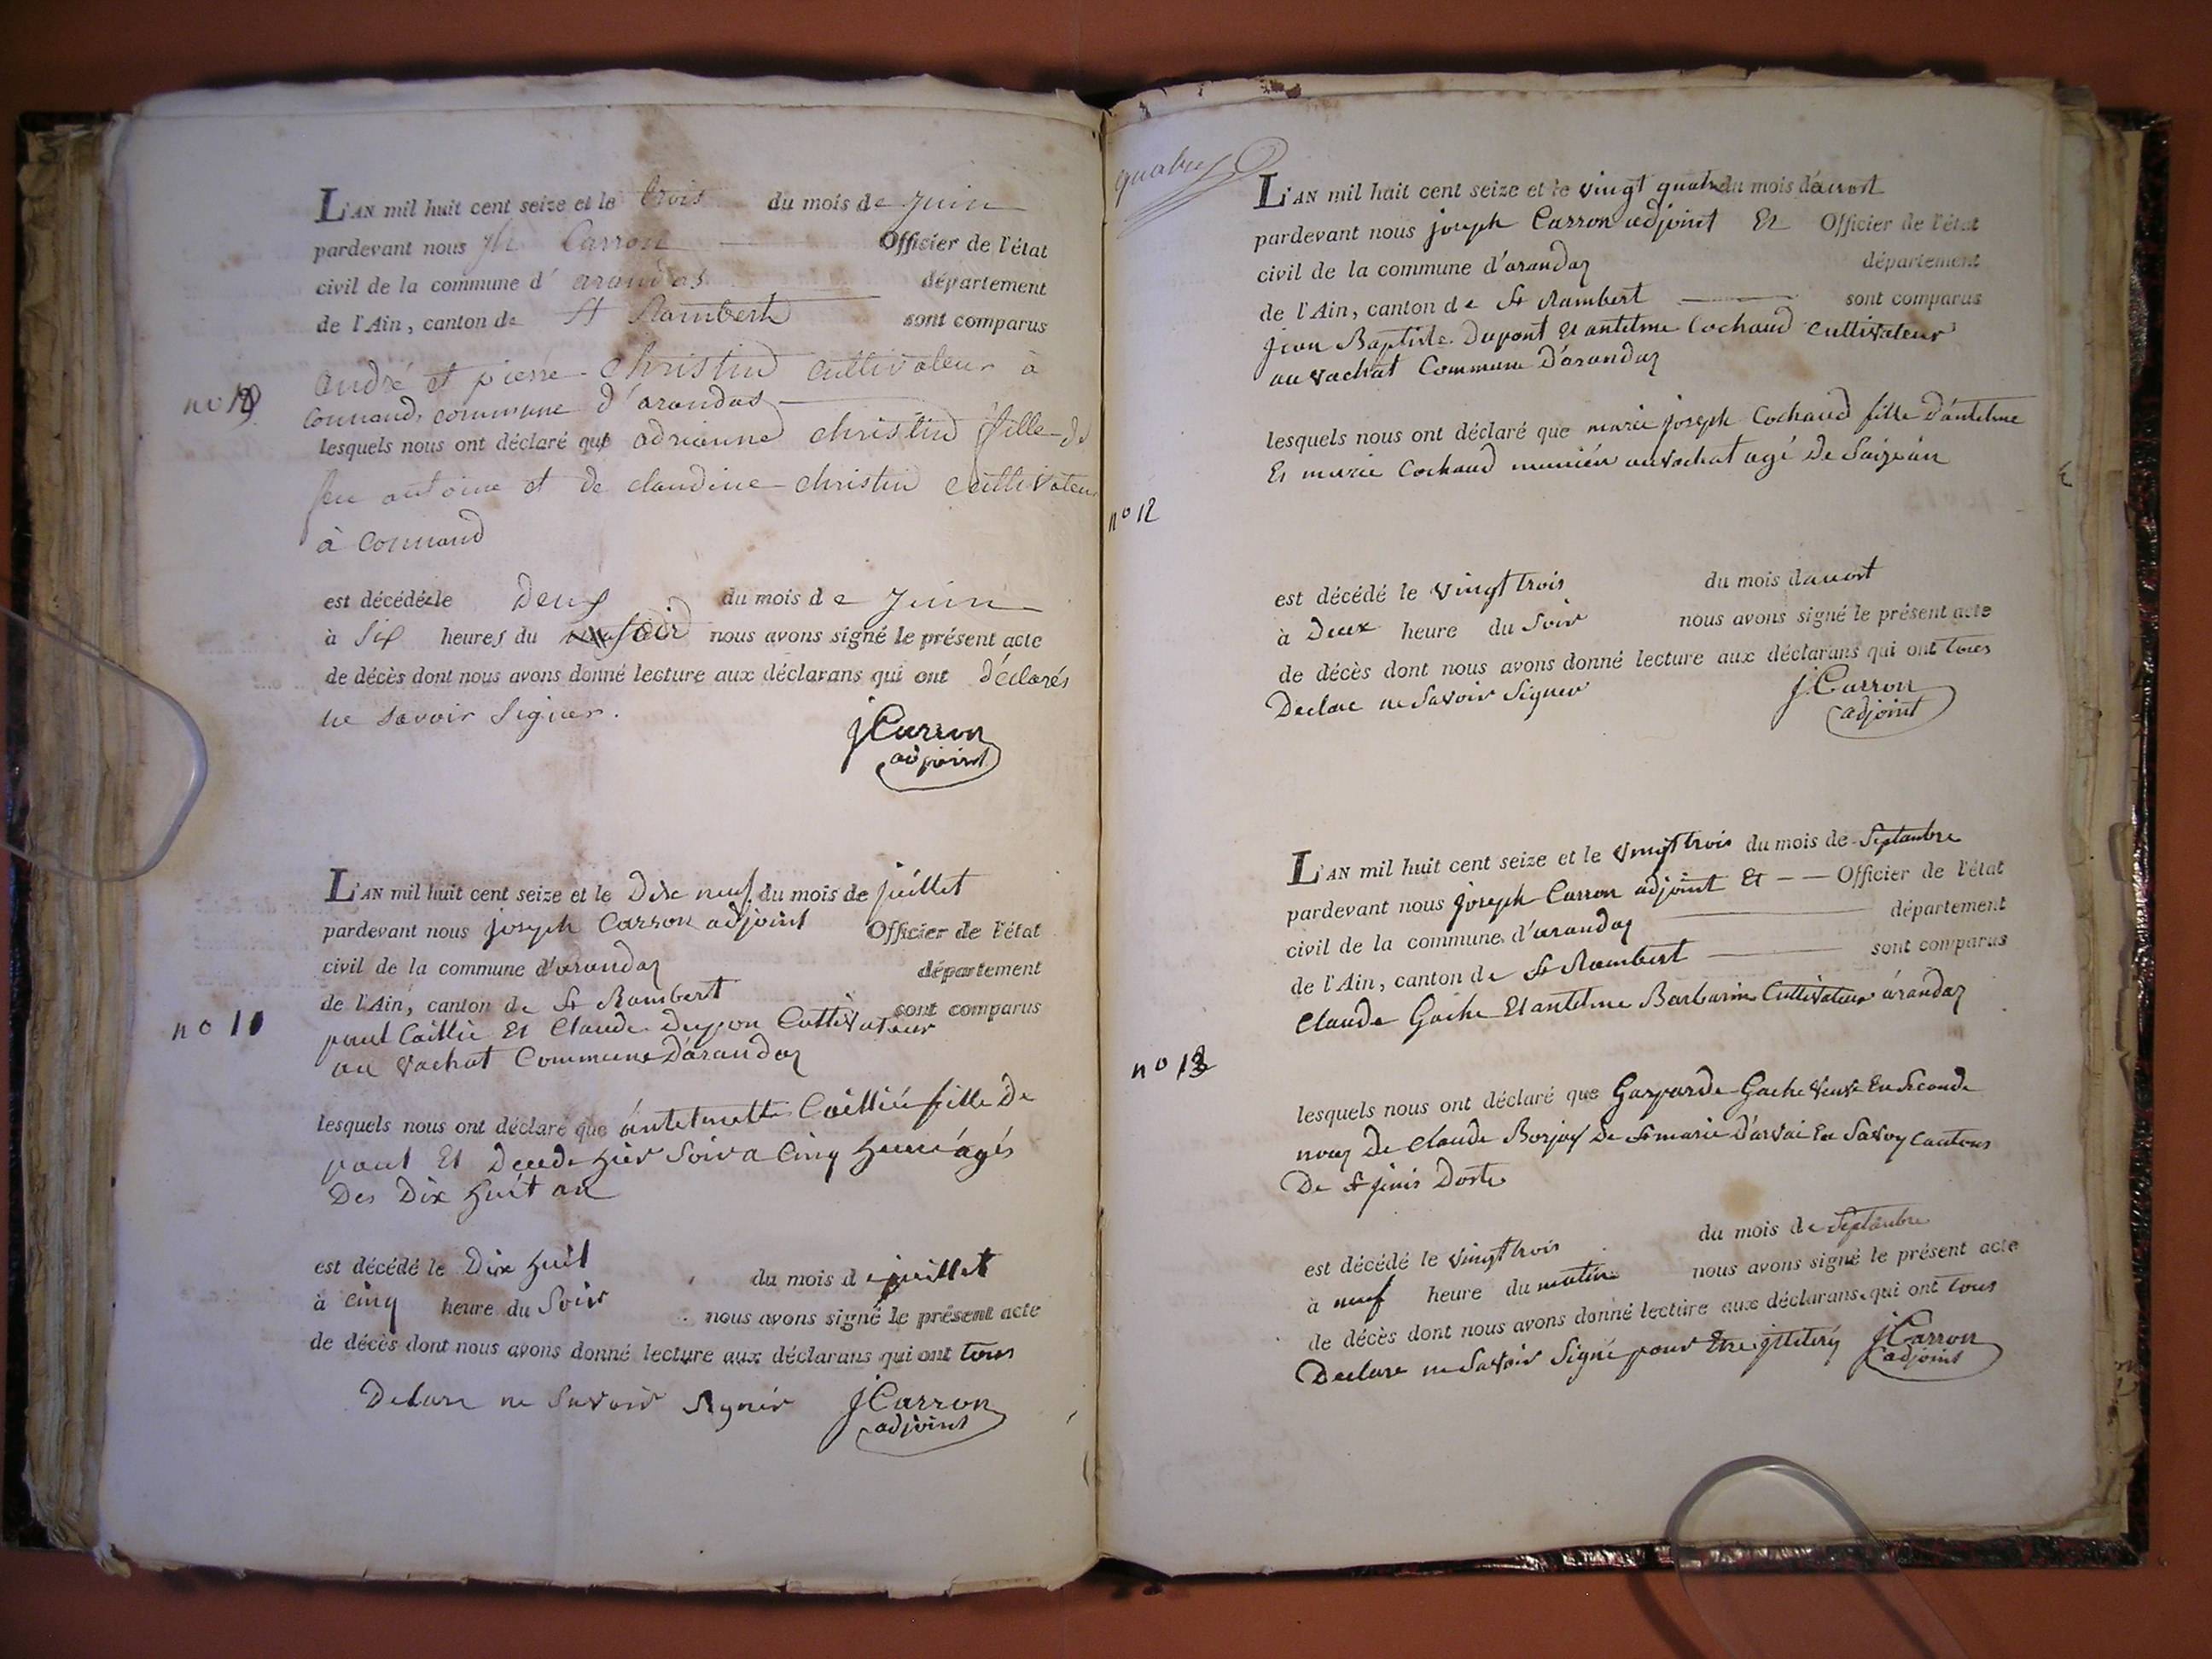 L'AN mil huit cent seize et le trois du mois de juin
pardevant nous jh Carron Officier de l'état
civil de la commune d'arandas département
de l'Ain, canton de St Rambert sont comparus
andré et pierre christin cultivateur à
no 10
connand, commune d'arandas
lesquels nous ont déclaré que adrianne christin fille de
feu antoine et de claudine christin cultivateur
à connand
est décédée le deux du mois de juin
à six heures du soir nous avons signé le présent acte
de décès dont nous avons donné lecture aux déclarans qui ont déclarés
ne savoir signer.
jCarron
adjoint
L'AN mil huit cent seize et le Dixe neuf du mois de juillet
pardevant nous joseph Carron adjoint Officier de l'état
civil de la commune d'arandaz département
de l'Ain, canton de St Rambert sont comparus
no 11
paul Caillie Et Claude Cultivateur
au vachat Commune D'arandaz
lesquels nous ont déclaré que fille De
paul Et hier Soir a Cinq
Des Dix huit an
est décédé le Dix huit du mois de juillet
à Cinq heure du Soir nous avons signé le présent acte
de décès dont nous avons donné lecture aux déclarans qui ont tous
Declare ne Savoir Signér
jCarron
adjoint
L'AN mil huit cent seize et le vingt quatre du mois d'auost
pardevant nous joseph Carron adjoint Et Officier de l'état
civil de la commune d'arandaz département
de l'Ain, canton de St Rambert sont comparus
jean Baptiste Dupont Et antelme Cochaud Cultivateur
au vachat Commune D'arandaz
lesquels nous ont déclaré que marie joseph Cochaud fille D'antelme
Et marie Cochaud au vachat agé De
no 12
est décédé le vingt trois du mois dauost
à Deux heure du Soir nous avons signé le présent acte
de décès dont nous avons donné lecture aux déclarans qui ont tous
Declare ne Savoir Signer
jCarron
adjoint
L'AN mil huit cent seize et le vingt trois du mois de Septanbre
pardevant nous joseph Carron adjoint Et Officier de l'état
civil de la commune d'arandaz département
de l'Ain, canton de St Rambert sont comparus
Claude Gache Et antelme Barbarin Cultivateur arandaz
no 13
lesquels nous ont déclaré que Gasparde Gache veuve En Seconde
De Claude De St marie D'arvai En Savoy Cantons
De St jinis Doste
est décédé le vingt trois du mois de Septanbre
à neuf heure du matin nous avons signé le présent acte
de décès dont nous avons donné lecture aux déclarans qui ont tous
Declare ne Savoir Signé pour Etre
jCarron
adjoint